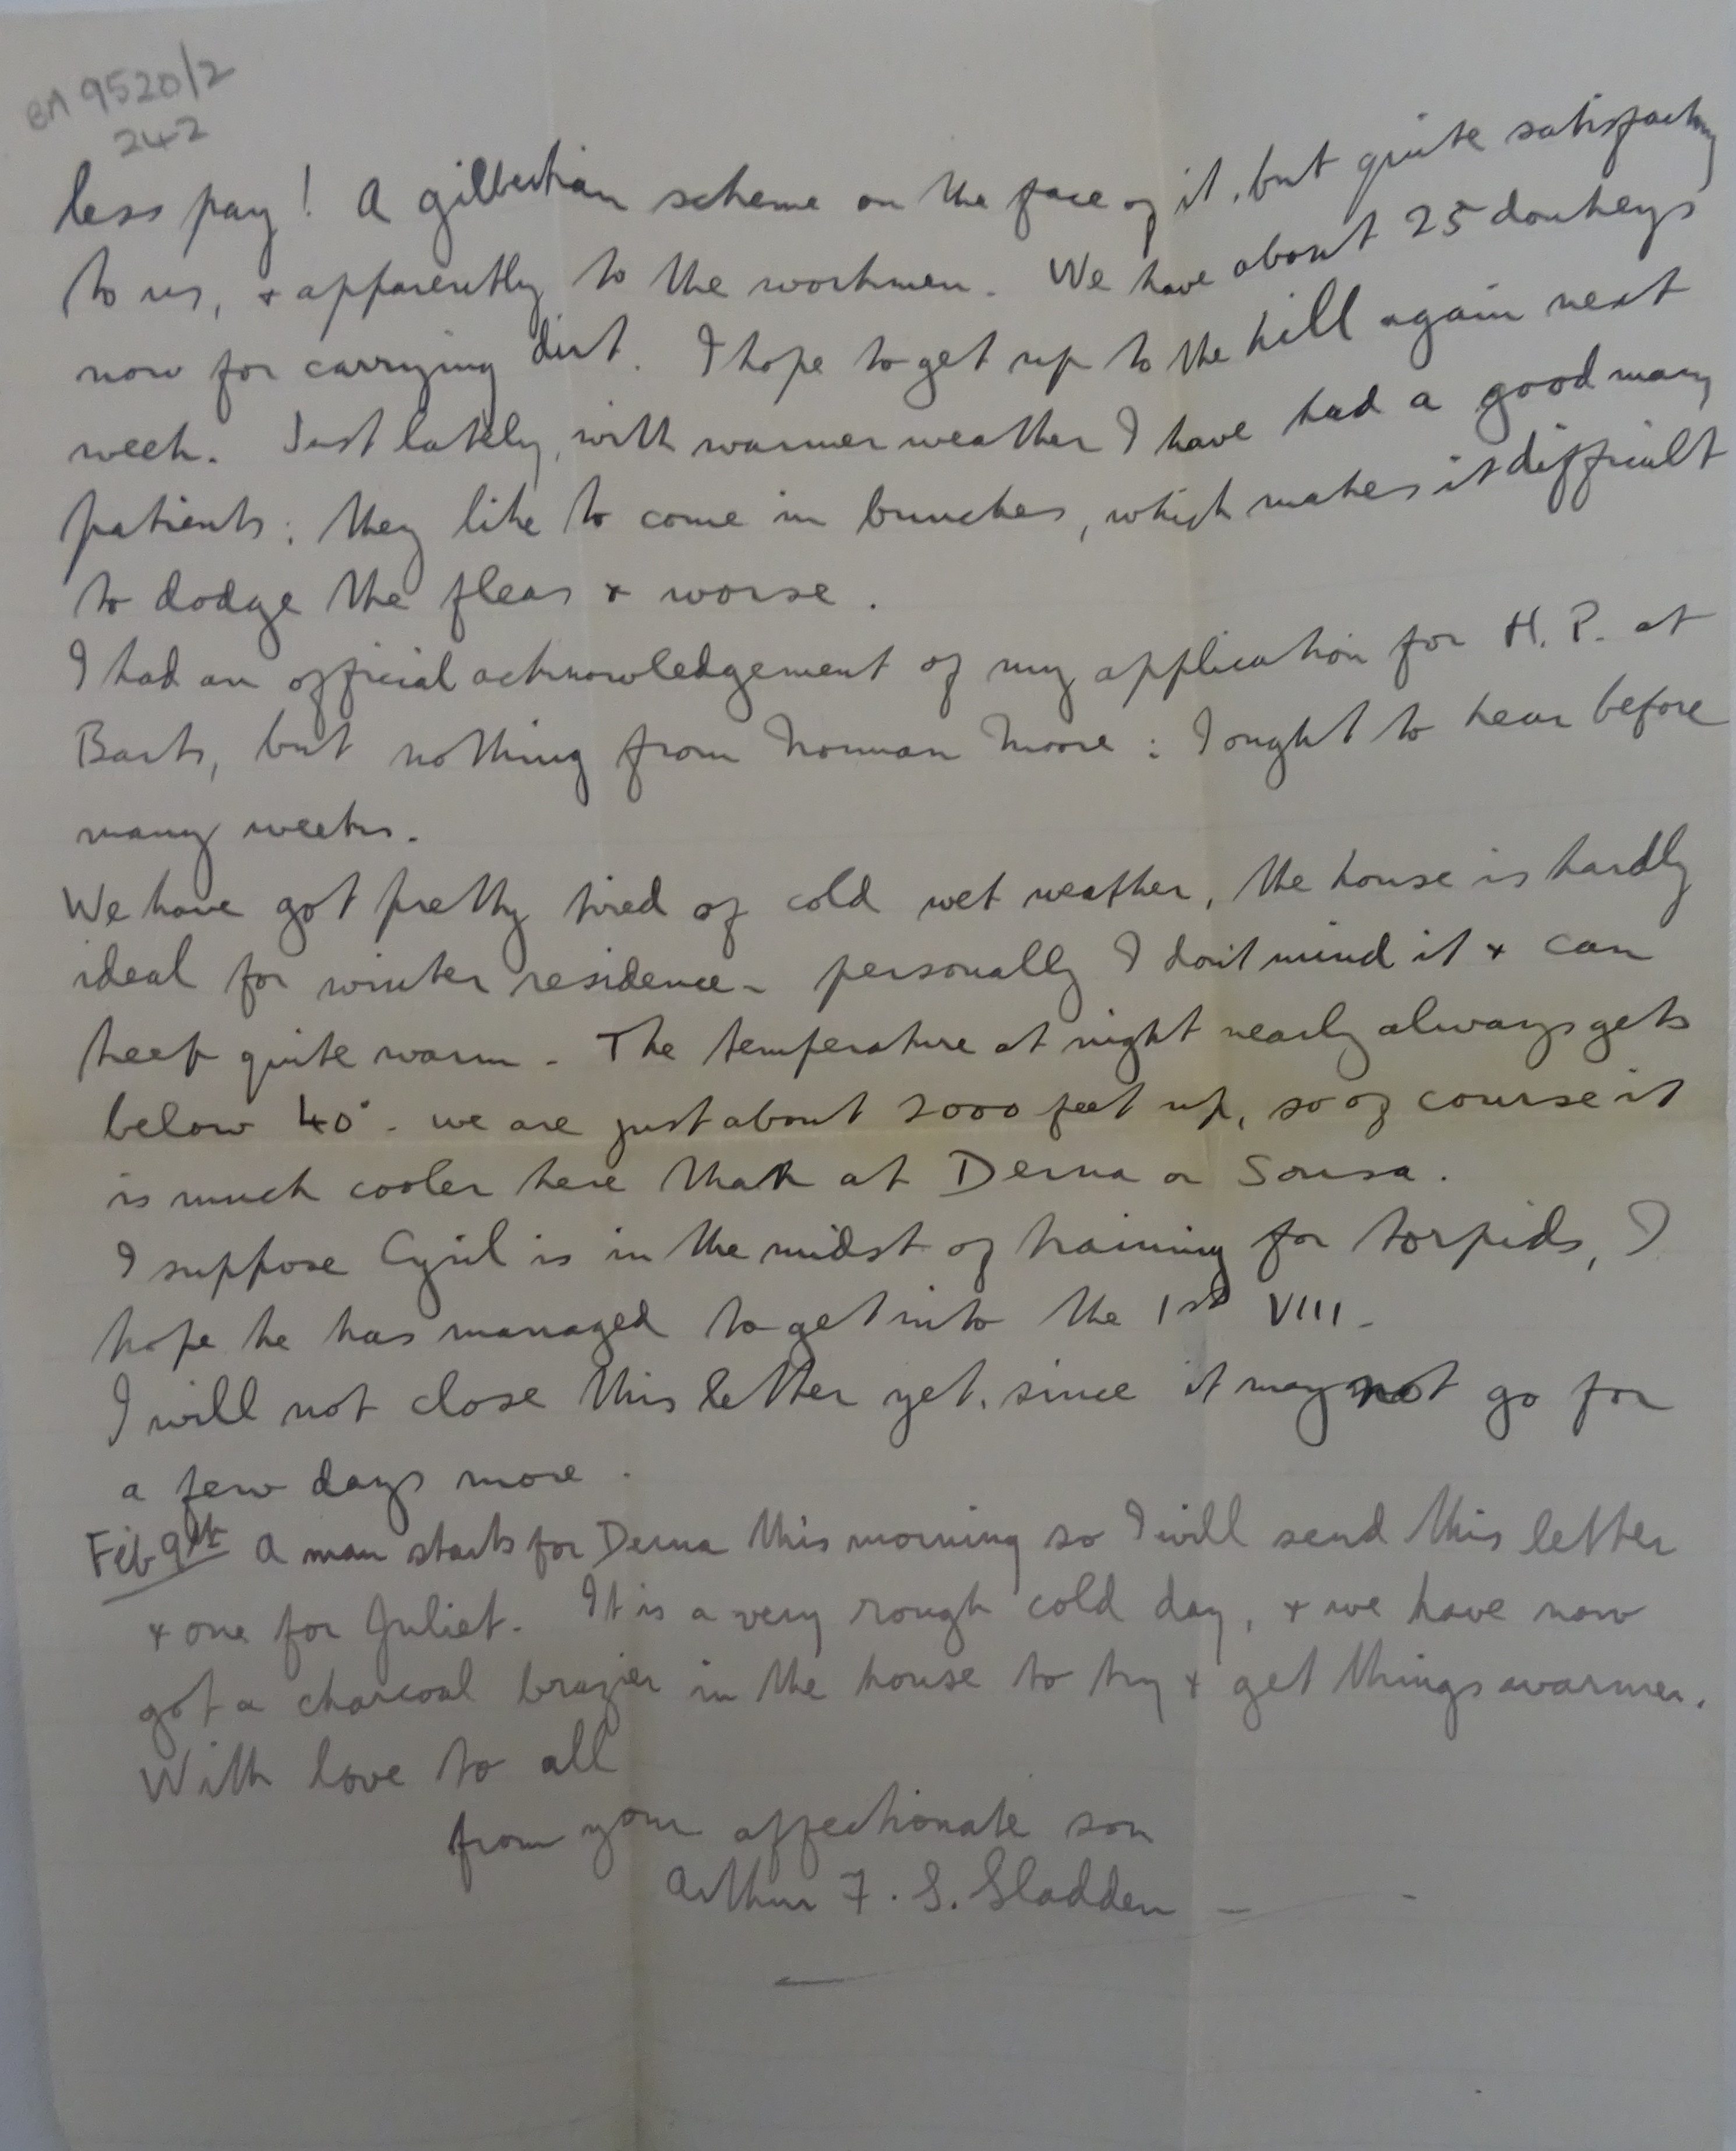 BA 9520/2
242
less pay! A gilbertian scheme on the face of it, but quite satisfactory
to us, & apparently to the workmen. We have about 25 donkeys
now for carrying dirt. I hope to get up to the hill again next
week. Just lately, with warmer weather I have had a good many
patients: they like to come in bunches, which makes it difficult
to dodge the fleas & worse.
I had an official acknowledgement of my application for H. P. at
Barts, but nothing from Norman Moore: I ought to hear before
many weeks.
We have got pretty tired of cold wet weather, the house is hardly
ideal for winter residence - personally I don't mind it & can
keep quite warm - The temperature at night nearly always gets
below 40° - we are just about 2000 feet up, so of course it
is much cooler here than at Derna or Sousa.
I suppose Cyril is in the midst of training for torpids, I
hope he has managed to get into the 1st VIII -
I will not close this letter yet, since it may not go for
a few days more.
Feb 9th A man starts for Derna this morning so I will send this letter
& one for Juliet. It is a very rough cold day, & we have now
got a charcoal brazier in the house to try & get things warmer.
With love to all
from your affectionate son
Arthur F. S. Sladden -